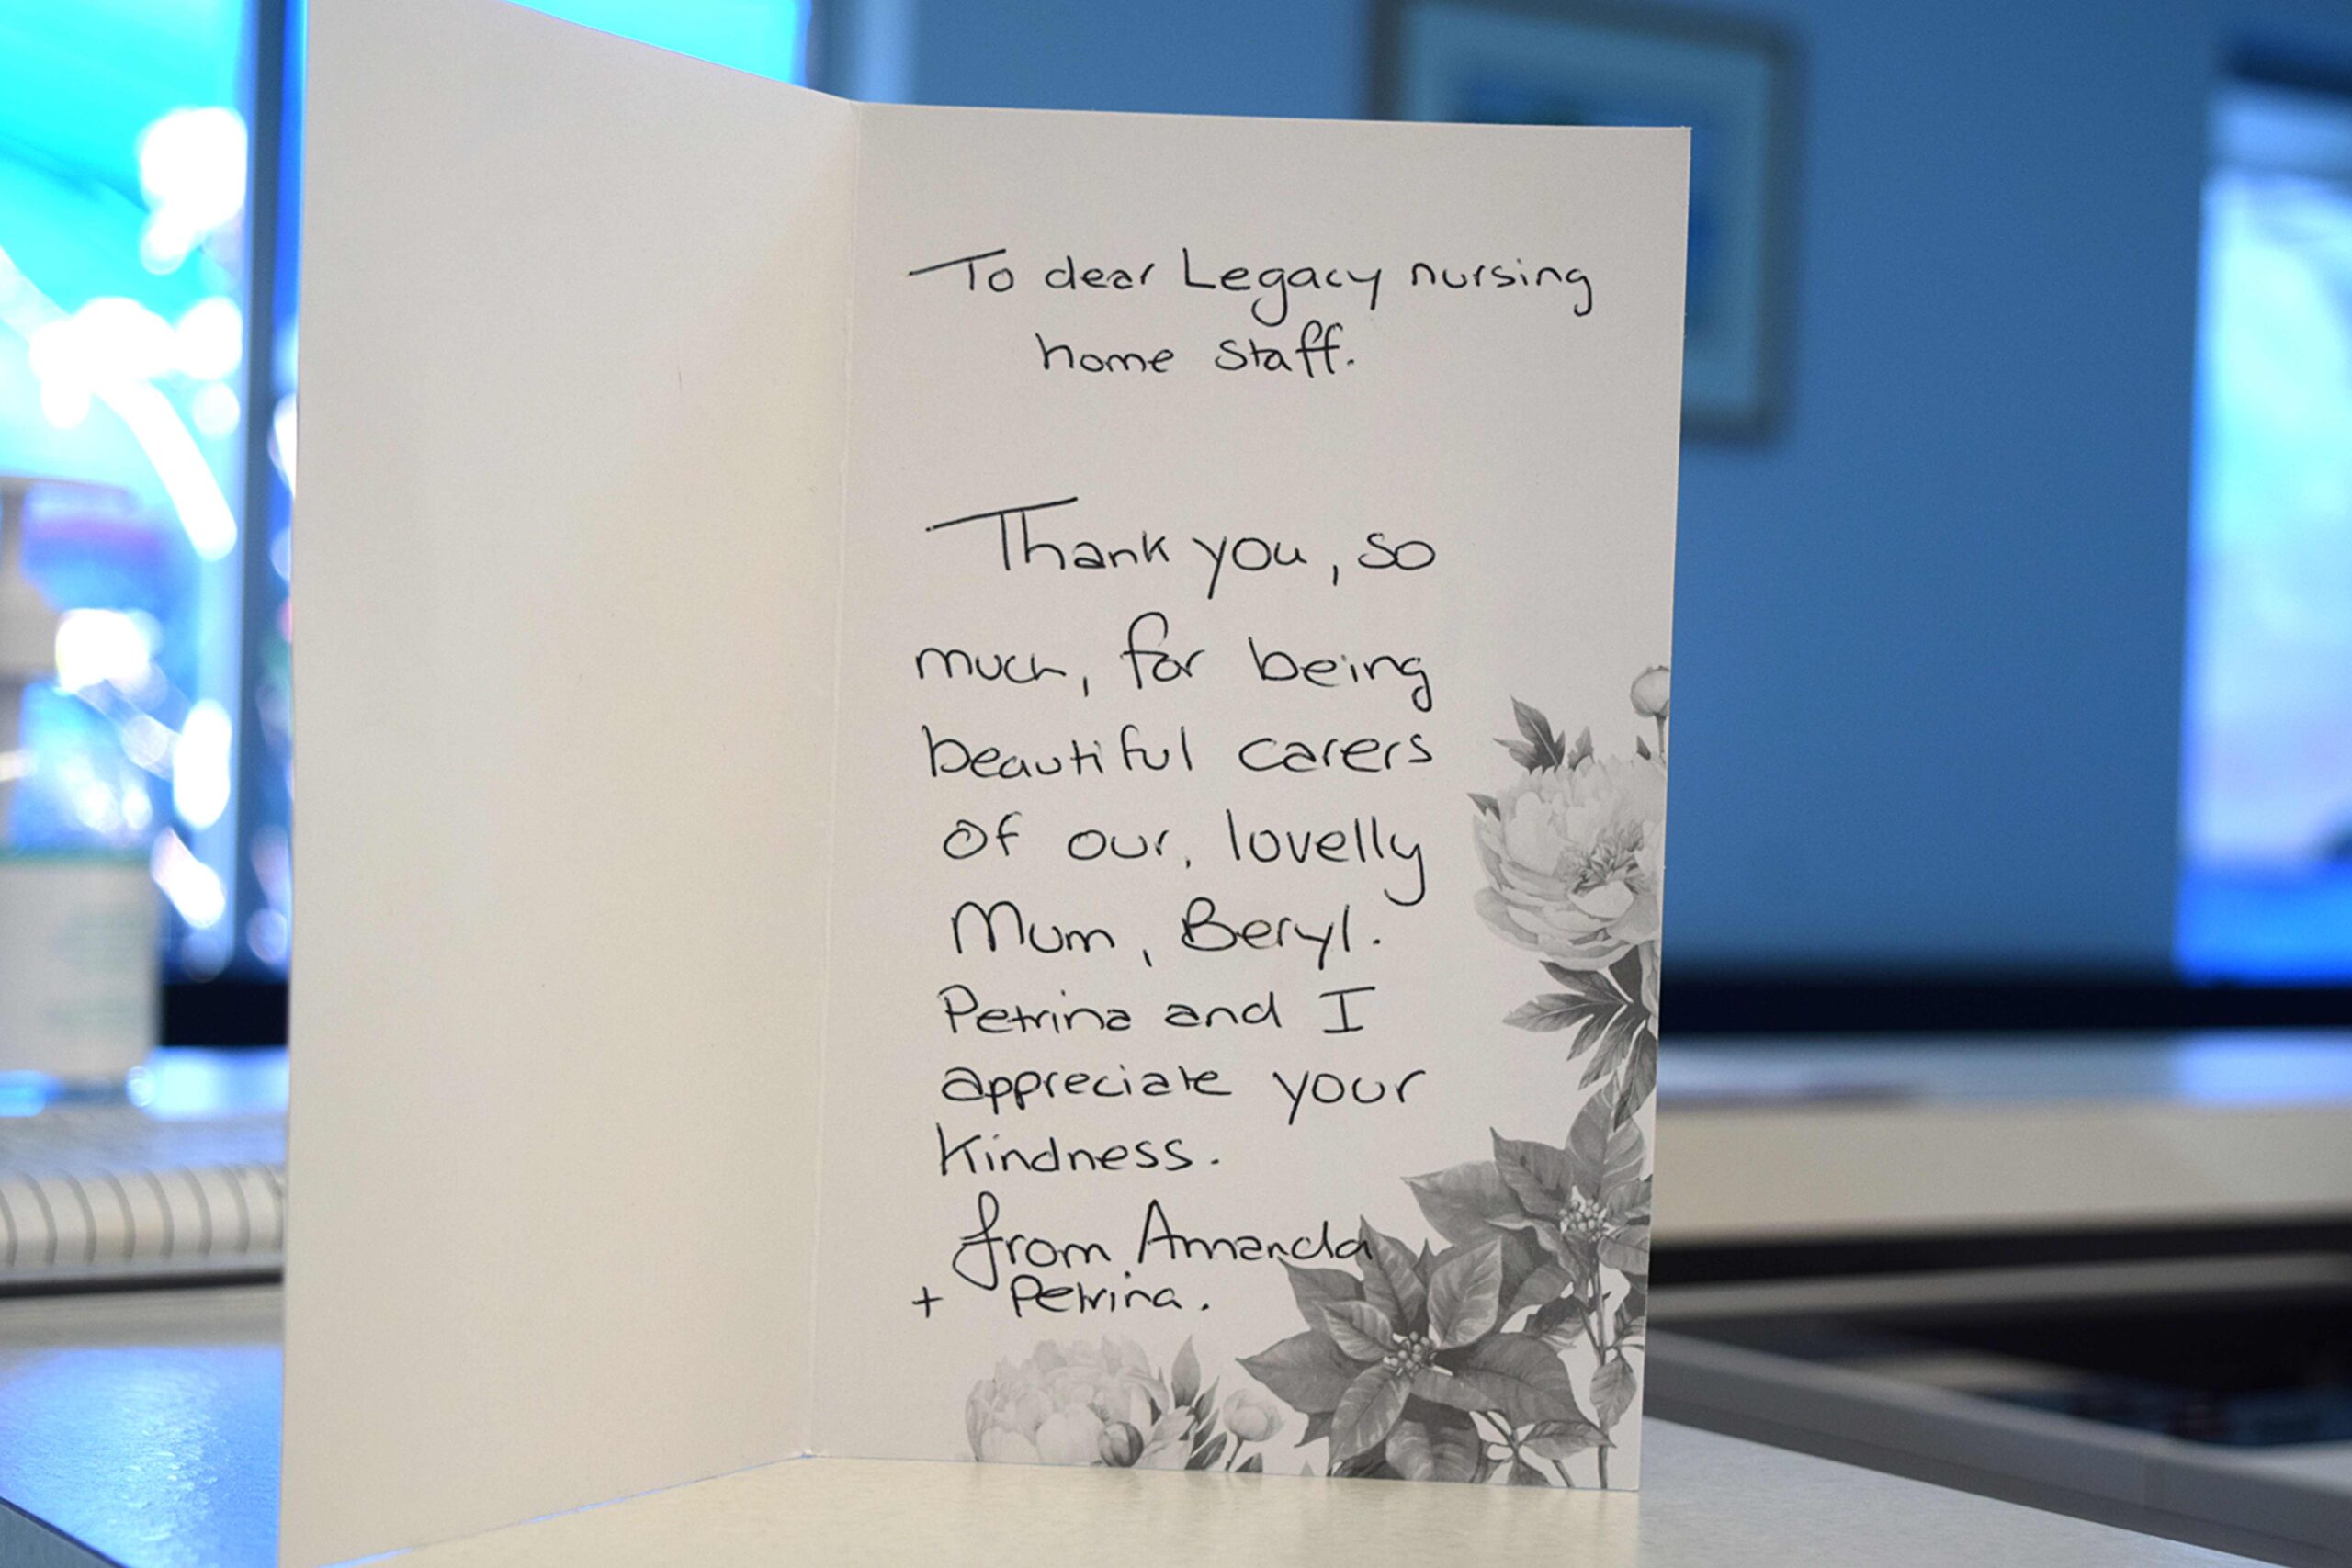 To dear Legacy nursing
home staff.
Thank you, so
much, for being
beautiful carers
of our, lovelly
Mum, Beryl.
Petrina and I
appreciate your
kindness.
from Amanda
+ Petrina.